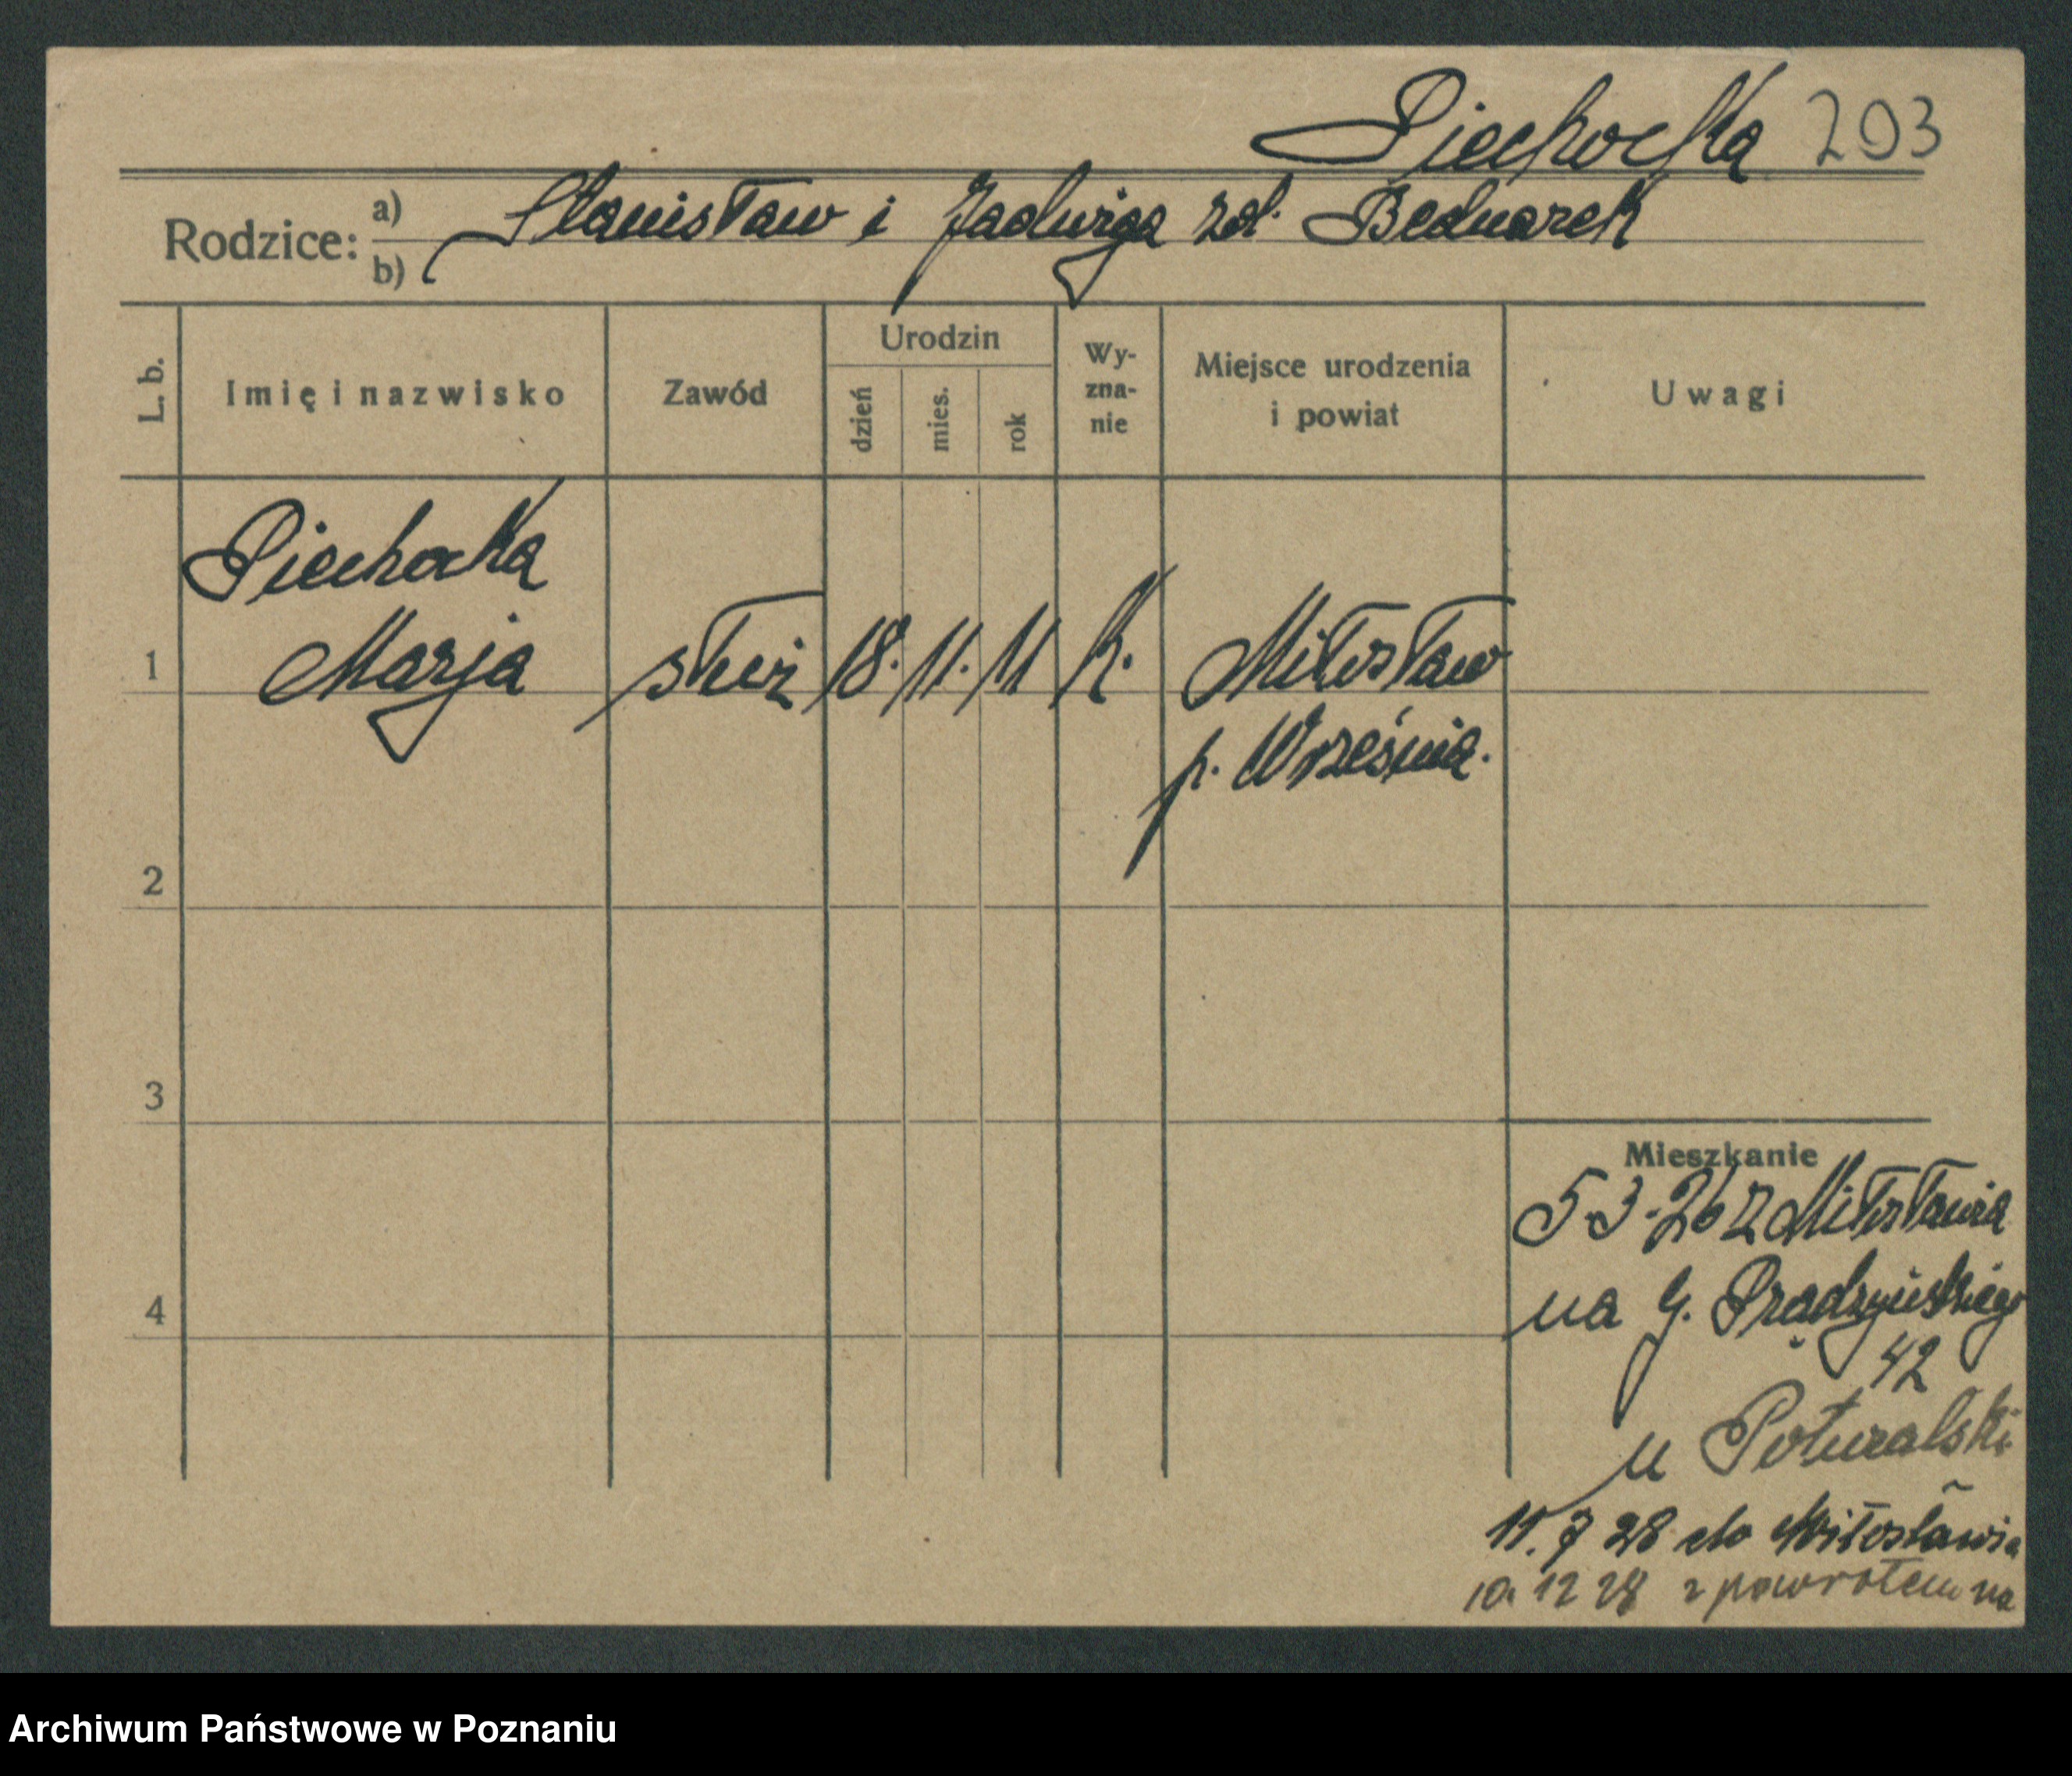 Piechocka 293
Rodzice: a) Stanisław i Jadwiga zd. Bednarek
b)
L. b. Imię i nazwisko Zawód Urodzin dzień mies. rok Wyzna-nie Miejsce urodzenia i powiat Uwagi
Piechocka
1 Marja służ 18. 11. 11 k. Miłosław
p. Września.
2
3
Mieszkanie
5.3.26 z Miłosławia
na G. Prądzyńskiego
4
42
u Poturalski
11. 7 28 do Miłosławia
10. 12 28 z powrotem na
Archiwum Państwowe w Poznaniu